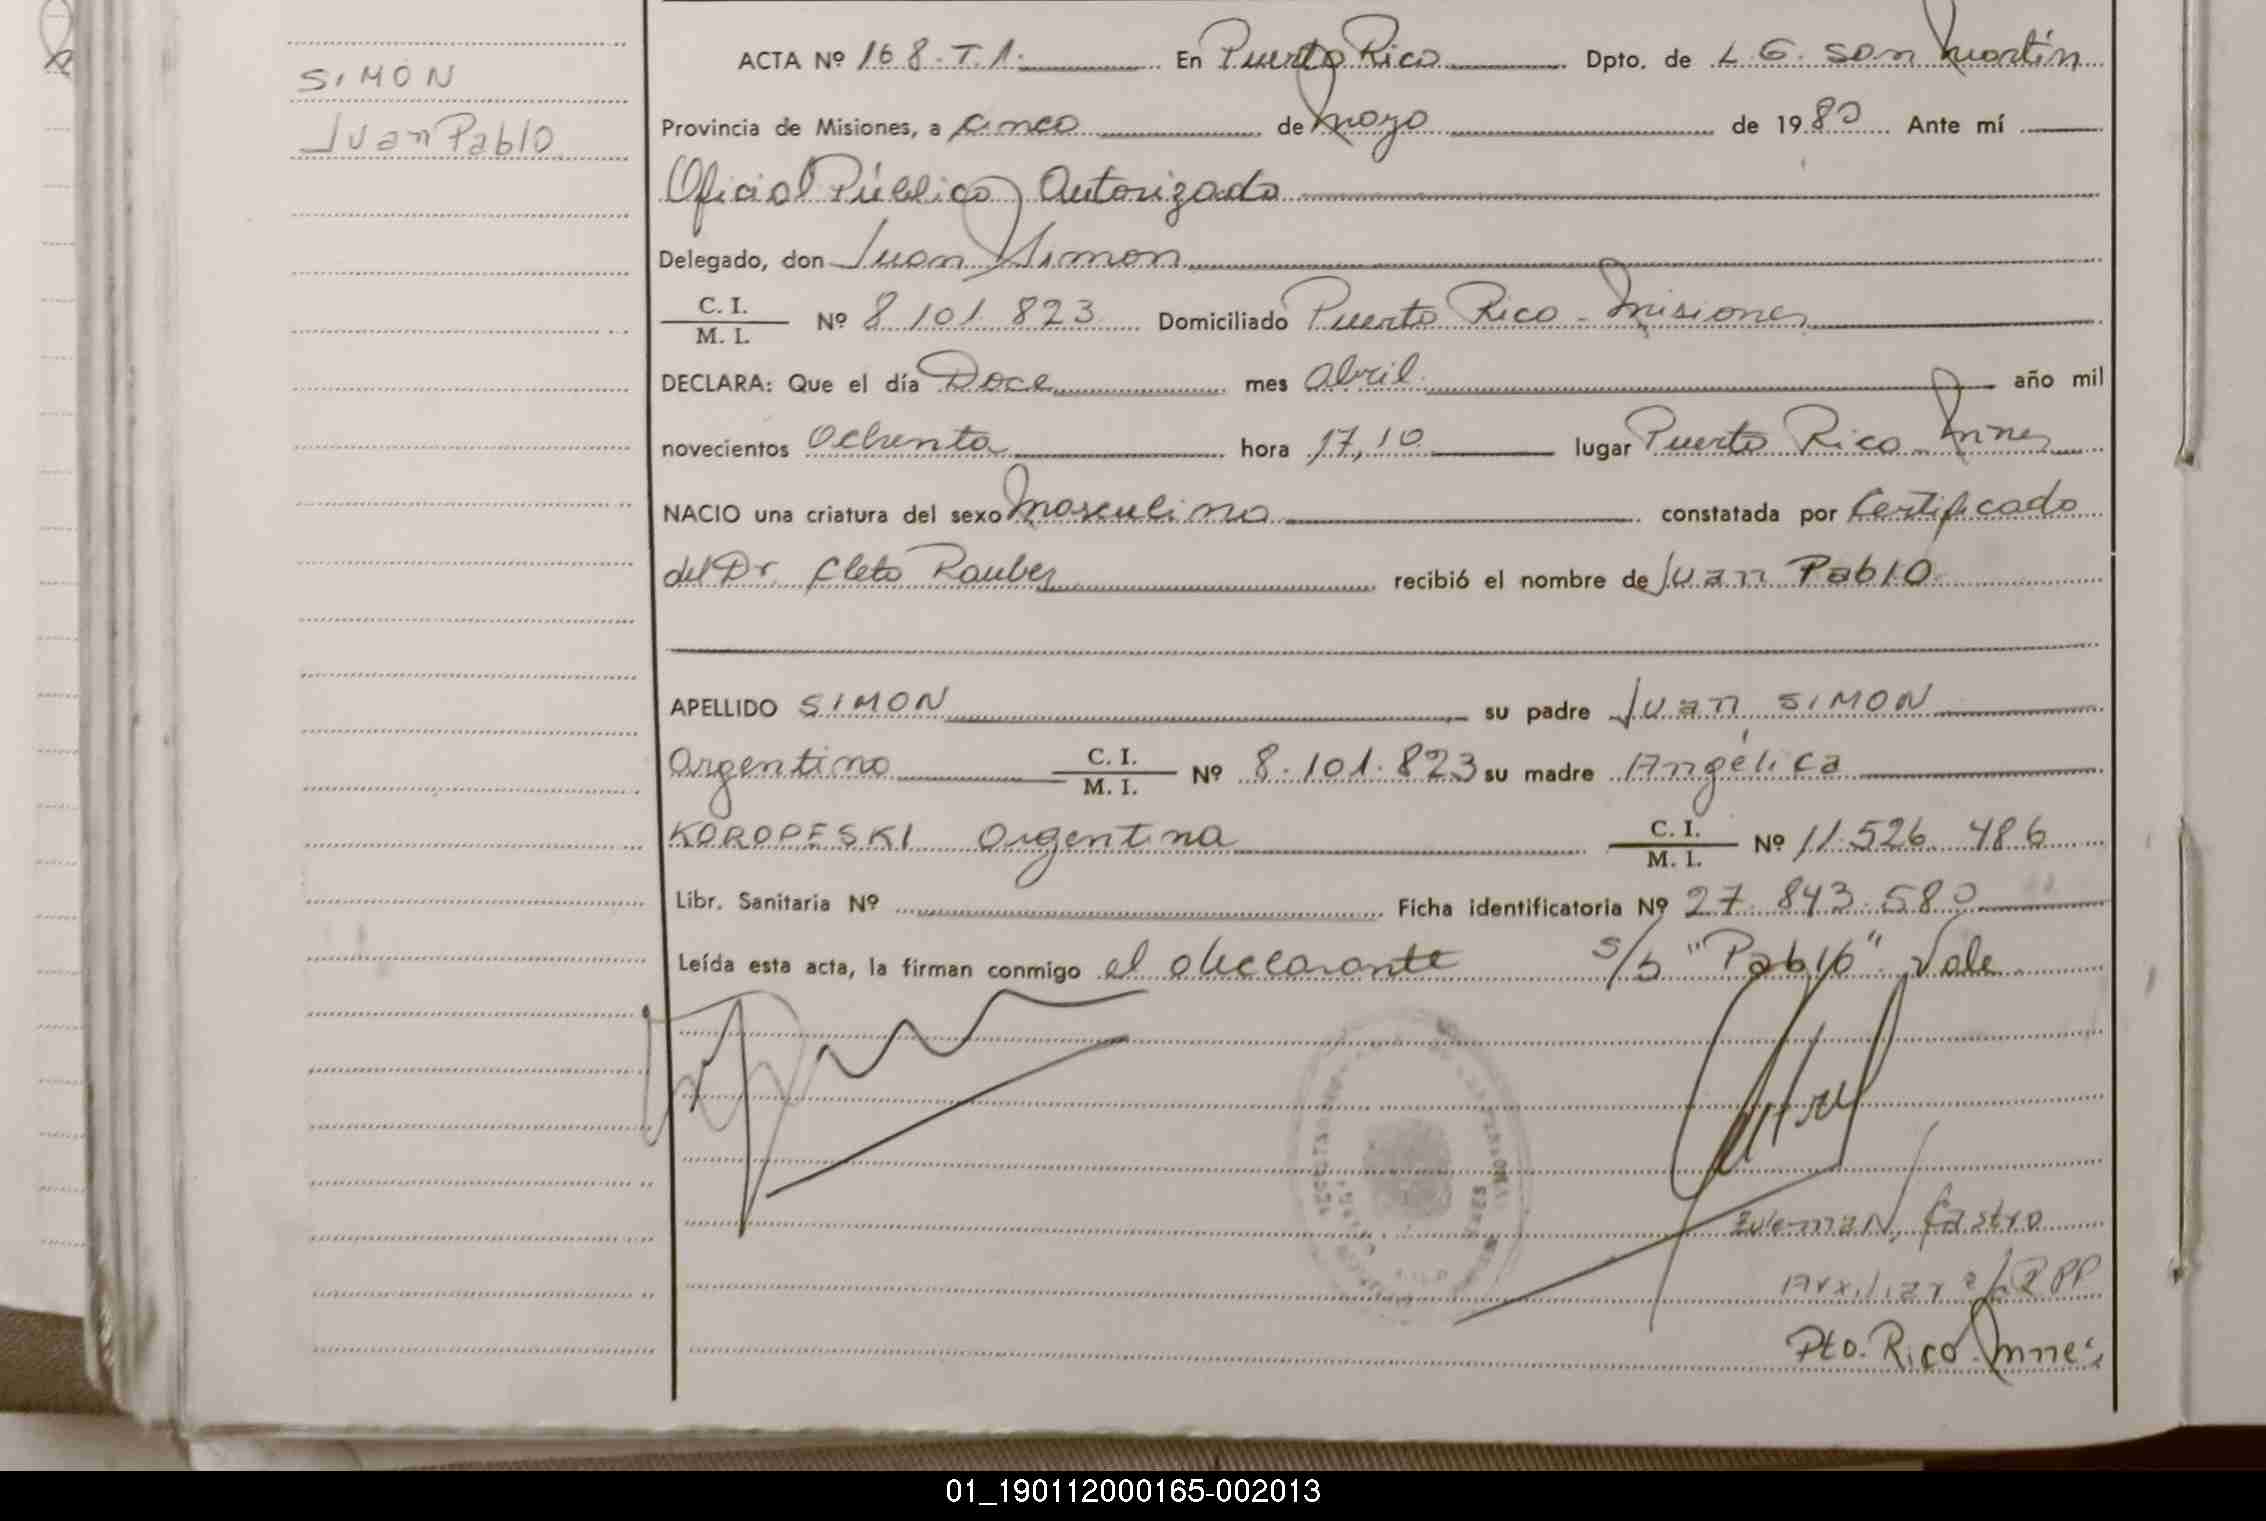 SIMON
Juan Pablo
ACTA Nº 168. T. 1. En Puerto Rico Dpto. de L. G. San Martín
Provincia de Misiones, a cinco de mayo de 1980 Ante mí
Oficial Público Autorizado
Delegado, don Juan Simon
C. I.
M. I.
Nº 8.101.823 Domiciliado Puerto Rico - Misiones
DECLARA: Que el día Doce mes abril año mil
novecientos Ochenta hora 17,10 lugar Puerto Rico - Mnes
NACIO una criatura del sexo Masculino constatada por Certificado
del Dr. Cleto Rauber recibió el nombre de Juan Pablo
APELLIDO SIMON su padre Juan SIMON
Argentino C. I.
M. I.
Nº 8.101.823 su madre Angélica
KOROPESKI Argentina C. I.
M. I.
Nº 11.526.486
Libr. Sanitaria Nº Ficha identificatoria Nº 27.843.580
Leída esta acta, la firman conmigo el declarante s/b "Pablo" Vale
Zulema N. Castro
Auxiliar
Pto. Rico Mnes
01_190112000165-002013